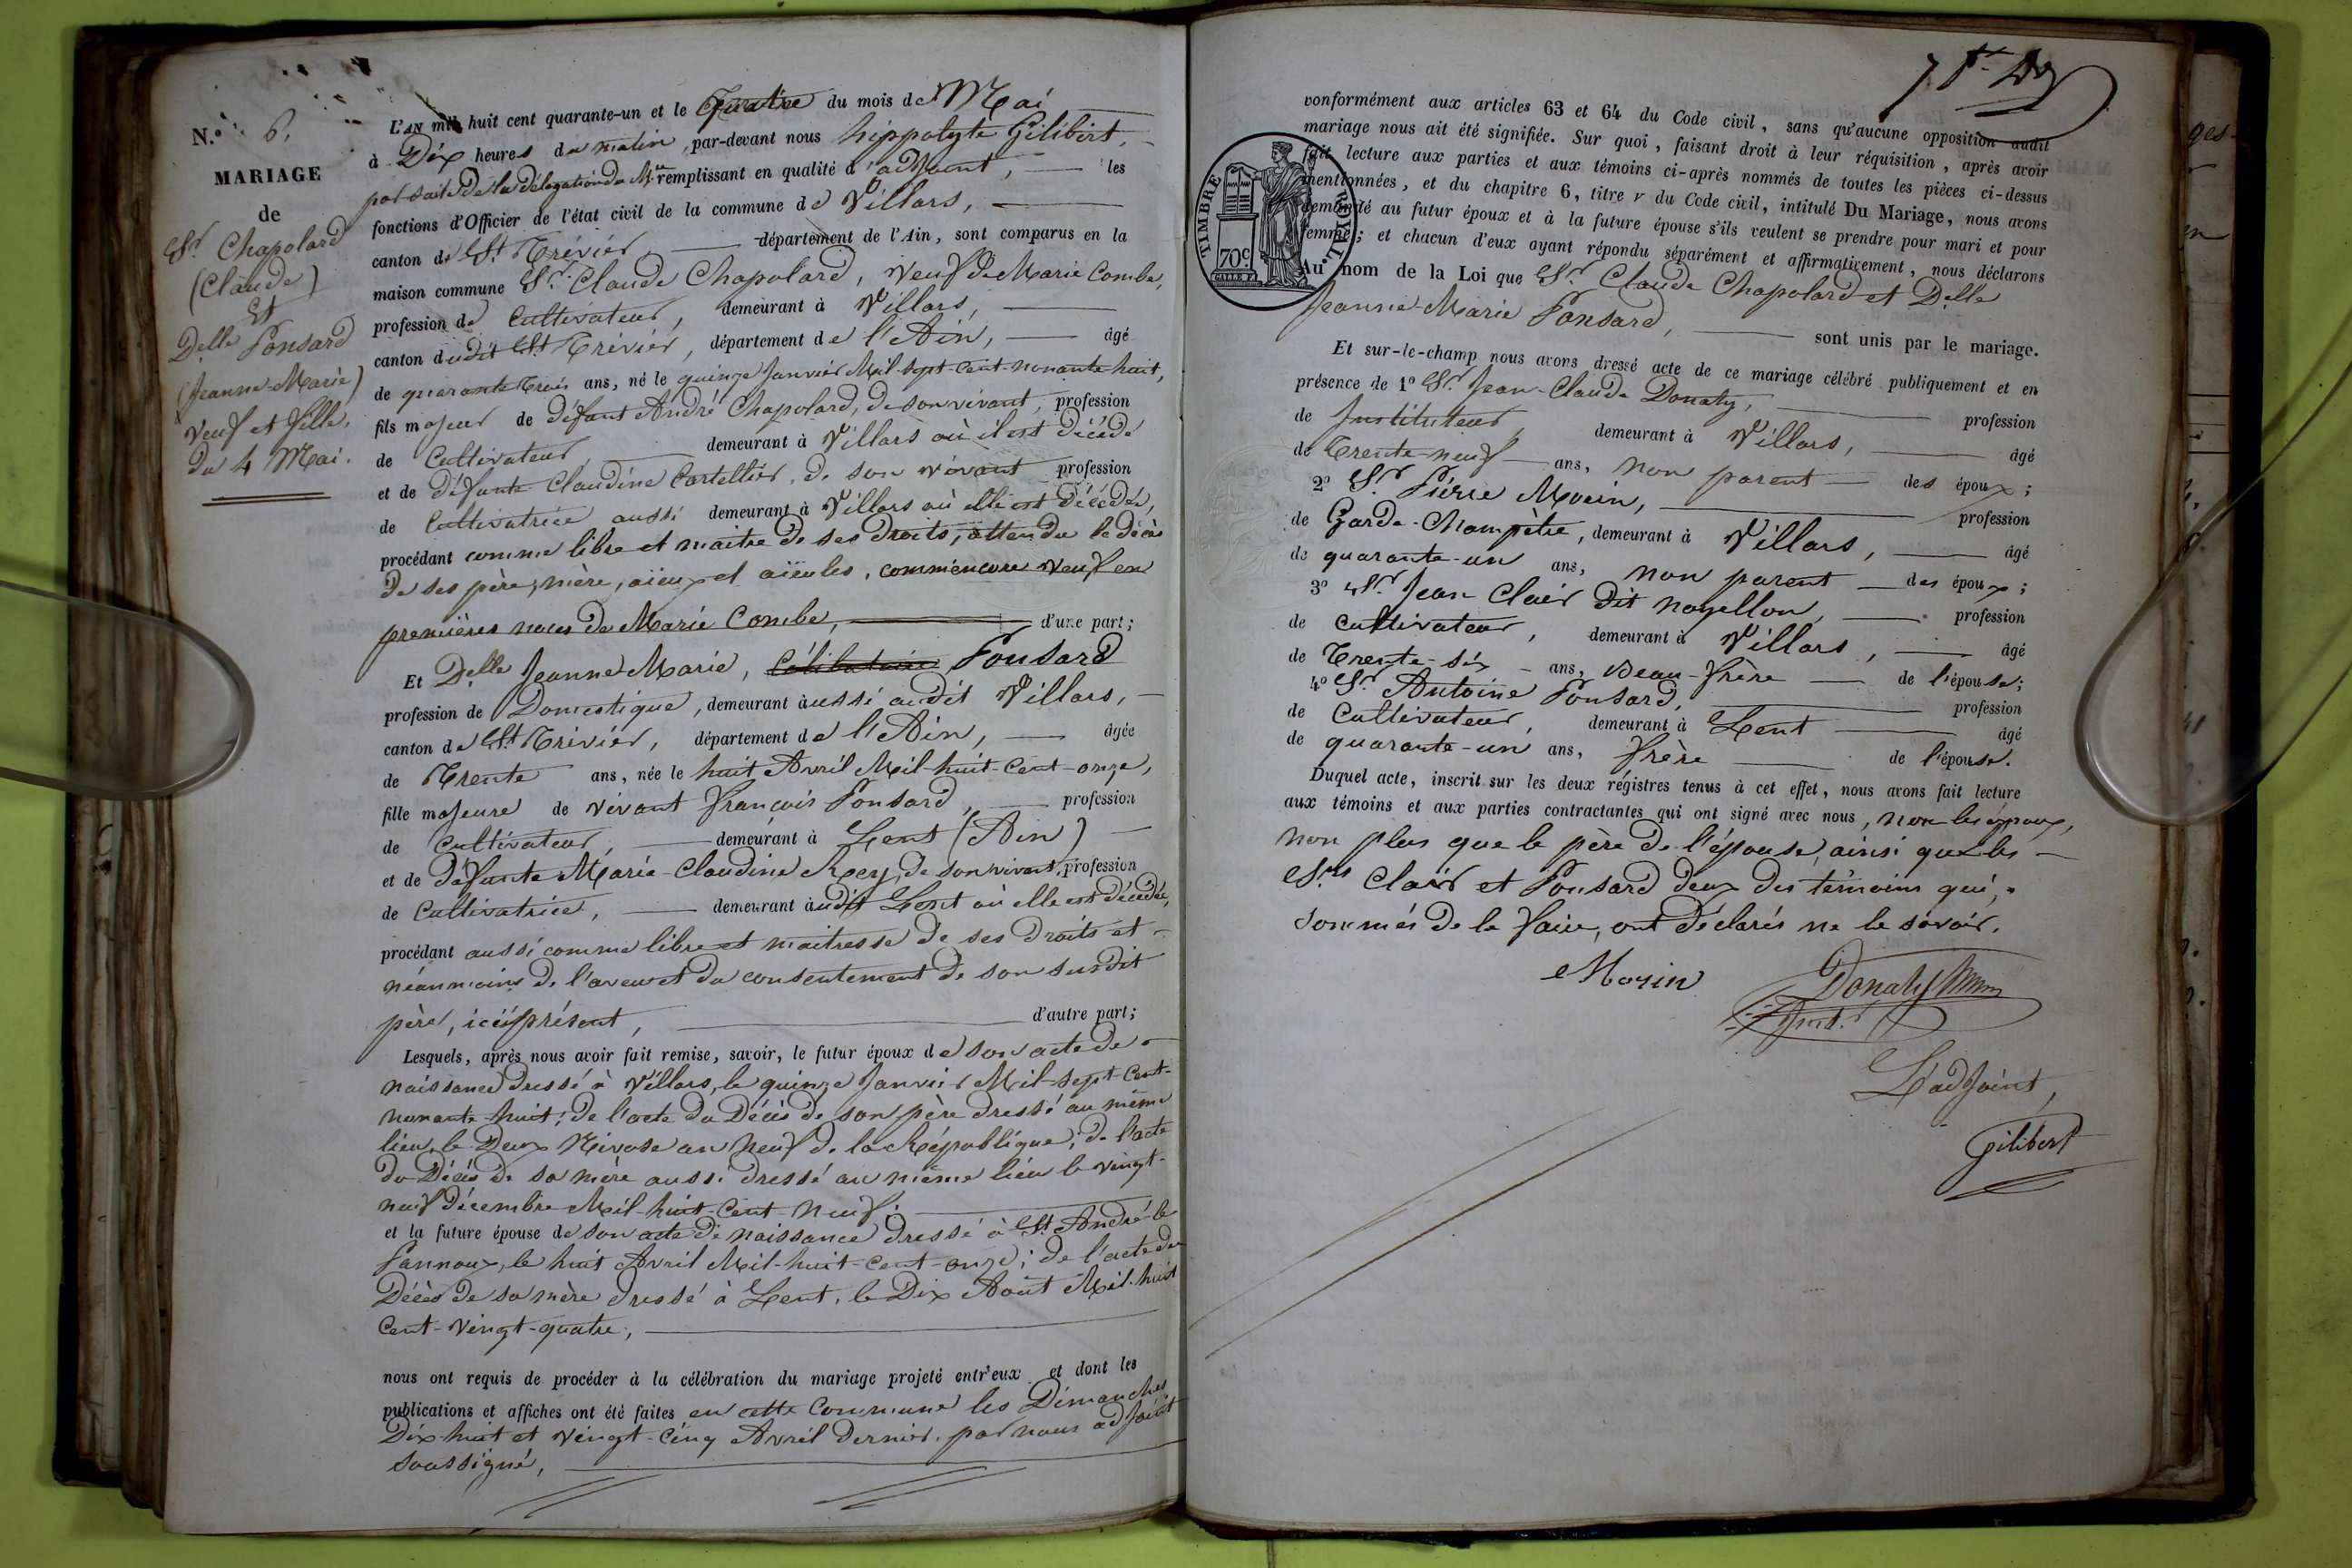 N.º 6.
MARIAGE
de
Sr. Chapolard
(Claude)
Et
Delle Ponsard
(Jeanne-Marie)
Veuf et fille,
du 4 Mai.
L'AN mil huit cent quarante-un et le Quatre du mois de Mai
à Dix heures du matin, par-devant nous hippolyte Gilibert,
par suite de la délégation de Mr. remplissant en qualité d'adjoint, les
fonctions d'Officier de l'état civil de la commune de Villars,
canton de St. Trévier département de l'Ain, sont comparus en la
maison commune Sr. Claude Chapolard, veuf de Marie Combe,
profession de Cultivateur, demeurant à Villars,
canton dudit St. Trévier, département de l'Ain, âgé
de quarante-trois ans, né le quinze Janvier Mil-sept-cent-nonante-huit,
fils majeur de défunt André Chapolard, de son vivant, profession
de Cultivateur, demeurant à Villars où il est décédé
et de défunte Claudine Cartellier, de son vivant profession
de Cultivatrice aussi demeurant à Villars où elle est décédée,
procédant comme libre et maitre de ses droits, attendu le décès
de ses père, mère, aïeux et aïeules, comme encore veuf en
premières noces de Marie Combe, d'une part;
Et Delle Jeanne Marie, Célibataire Ponsard
profession de Domestique, demeurant aussi audit Villars,
canton de St. Trévier, département de l'Ain, âgée
de Trente ans, née le huit Avril Mil-huit-cent-onze,
fille majeure de vivant François Ponsard, profession
de Cultivateur, demeurant à Lent (Ain)
et de défunte Marie-Claudine Rey, de son vivant, profession
de Cultivatrice, demeurant audit Lent où elle est décédée,
procédant aussi comme libre et maitresse de ses droits et
néanmoins de l'aveu et du consentement de son susdit
père, ici présent, d'autre part;
Lesquels, après nous avoir fait remise, savoir, le futur époux de son acte de
naissance dressé à Villars, le quinze Janvier Mil-sept-Cent-
nonante-huit; de l'acte du Décès de son père dressé au même
lieu, le Deux Nivose an neuf de la République; de l'acte
du Décès de sa mère aussi dressé au même lieu le vingt-
neuf décembre Mil-huit-cent-neuf.
et la future épouse de son acte de naissance dressé à St. André-le
Pannoux, le huit Avril Mil-huit-cent-onze; de l'acte du
Décès de sa mère dressé à Lent, le Dix Août Mil-huit
Cent-vingt-quatre;
nous ont requis de procéder à la célébration du mariage projeté entr'eux et dont les
publications et affiches ont été faites en cette Commune les Dimanches
Dix-huit et vingt-cinq Avril dernier, par nous adjoint
soussigné,
conformément aux articles 63 et 64 du Code civil, sans qu'aucune opposition audit
mariage nous ait été signifiée. Sur quoi, faisant droit à leur réquisition, après avoir
fait lecture aux parties et aux témoins ci-après nommés de toutes les pièces ci-dessus
mentionnées, et du chapitre 6, titre v du Code civil, intitulé Du Mariage, nous avons
demandé au futur époux et à la future épouse s'ils veulent se prendre pour mari et pour
femme; et chacun d'eux ayant répondu séparément et affirmativement, nous déclarons
Au nom de la Loi que Sr. Claude Chapolard et Delle
Jeanne-Marie Ponsard, sont unis par le mariage.
TIMBRE
70c
Et sur-le-champ nous avons dressé acte de ce mariage célébré publiquement et en
présence de 1º Sr. Jean-Claude Donaty, profession
de Instituteur, demeurant à Villars, âgé
de Trente-neuf ans, non parent des époux;
2º Sr. Pierre Morin, profession
de Garde-Champêtre, demeurant à Villars, âgé
de quarante-un ans, non parent des époux;
3º Sr. Jean Clair dit noyellon, profession
de Cultivateur, demeurant à Villars, âgé
de Trente-six ans, Beau-frère de l'épouse;
4º Sr. Antoine Ponsard, profession
de Cultivateur, demeurant à Lent âgé
de quarante-un ans, frère de l'épouse.
Duquel acte, inscrit sur les deux régistres tenus à cet effet, nous avons fait lecture
aux témoins et aux parties contractantes qui ont signé avec nous, non les époux,
non plus que le père de l'épouse, ainsi que les
Srs Clair et Ponsard deux des témoins qui,
sommés de le faire, ont déclarés ne le savoir.
Morin
Donaty
Inst.r
L'adjoint,
Gilibert